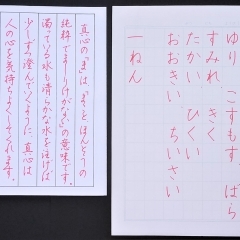 真心の「ま」は、「まことほんとうの
純粋でまじりけがない」の意味です。
濁っている水も清らかな水を注げば
少しずつ澄んでいくように、真心は
人の心を気持ちよくしてくれます。
ゆり こすもす ばら
すみれ きく
たかい ひくい
おおきい ちいさい
一ねん